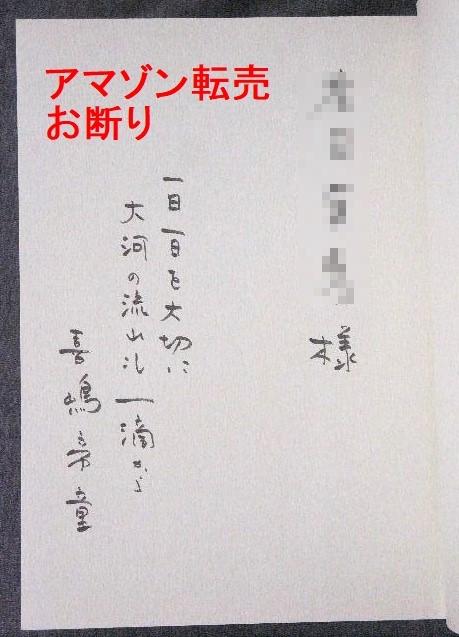 アマゾン転売
お断り
様
一日一日を大切に
大河の流れも一滴から
喜嶋 童